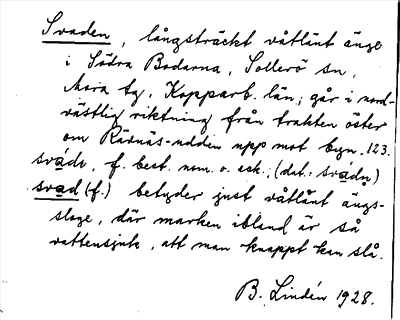 Svaden, långsträckt våtlänt änge
i Södra Bodarna, Sollerö sn,
Mora tg, Kopparb. län; går i nord-
västlig riktning från trakten öster
om Rävnäs-udden upp mot byn. 123.
svádi, f. best. nom. o. ack.; (dat. svádn)
svad (f.) betyder just våtlänt ängs-
slage, där marken ibland är så
vattensjuk, att man knappt kan slå.
B. Lindén 1928.